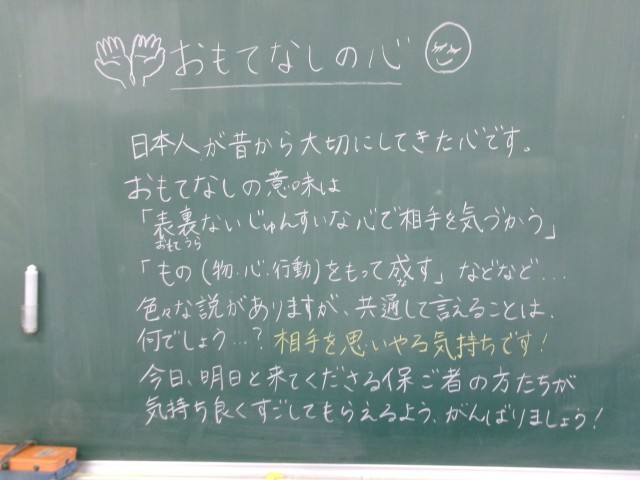 おもてなしの心
日本人が昔から大切にしてきた心です。
おもてなしの意味は
「表裏ないじゅんすいな心で相手を気づかう」
おもてうら
「もの(物・心・行動)をもって成す」などなど…
な
色々な説がありますが、共通して言えることは、
何でしょう…? 相手を思いやる気持ちです!
今日、明日と来てくださる保ご者の方たちが
気持ち良くすごしてもらえるよう、がんばりましょう!